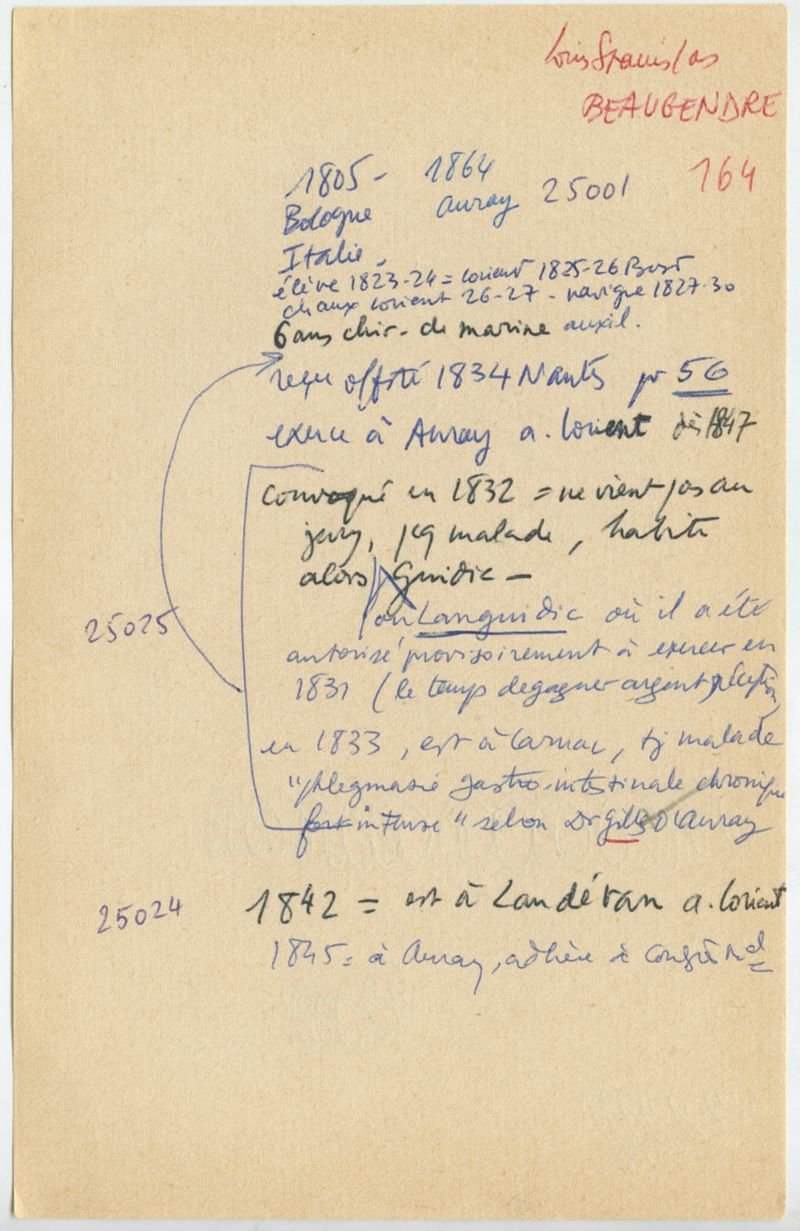 Louis Stanislas
BEAUGENDRE
164
1805 - 1864
Bologne Auray 25001
Italie -
élève 1823-24 = Lorient 1825-26 Brest
chaux Lorient 26-27 - navigue 1827-30
6 ans chir. de marine auxil.
reçu offsté 1834 Nantes pr 56
exerce à Auray a. Lorient dès 1847
convoqué en 1832 = ne vient pas au
jury, pcq malade, habite
alors Guidic -
ou Languidic où il a été
25025
autorisé provisoirement à exercer en
1831 (le temps de gagner argent réception)
en 1833, est à Carnac, tj malade
"phlegmasie gastro-intestinale chronique
fort intense" selon Dr Gilles d'Auray
25024
1842 = est à Landévan a. Lorient
1845 = à Auray, adhère à Congrès Mal